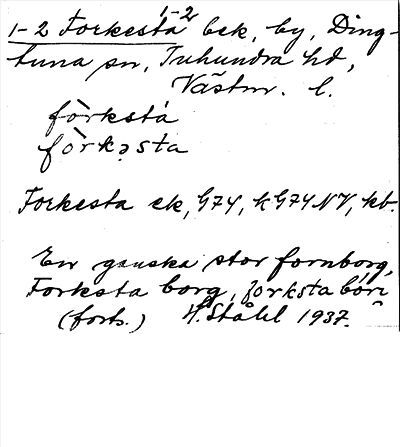 1-2 Forkesta 1-2 bek, by, Ding-
tuna sn, Tuhundra hd,
Västm. l.
fòrksta
fòrkəsta
Forkesta ek, G74, kG74NV, kb.
En ganska stor fornborg,
Forksta borg, forksta
(forts.) H. Ståhl 1937.